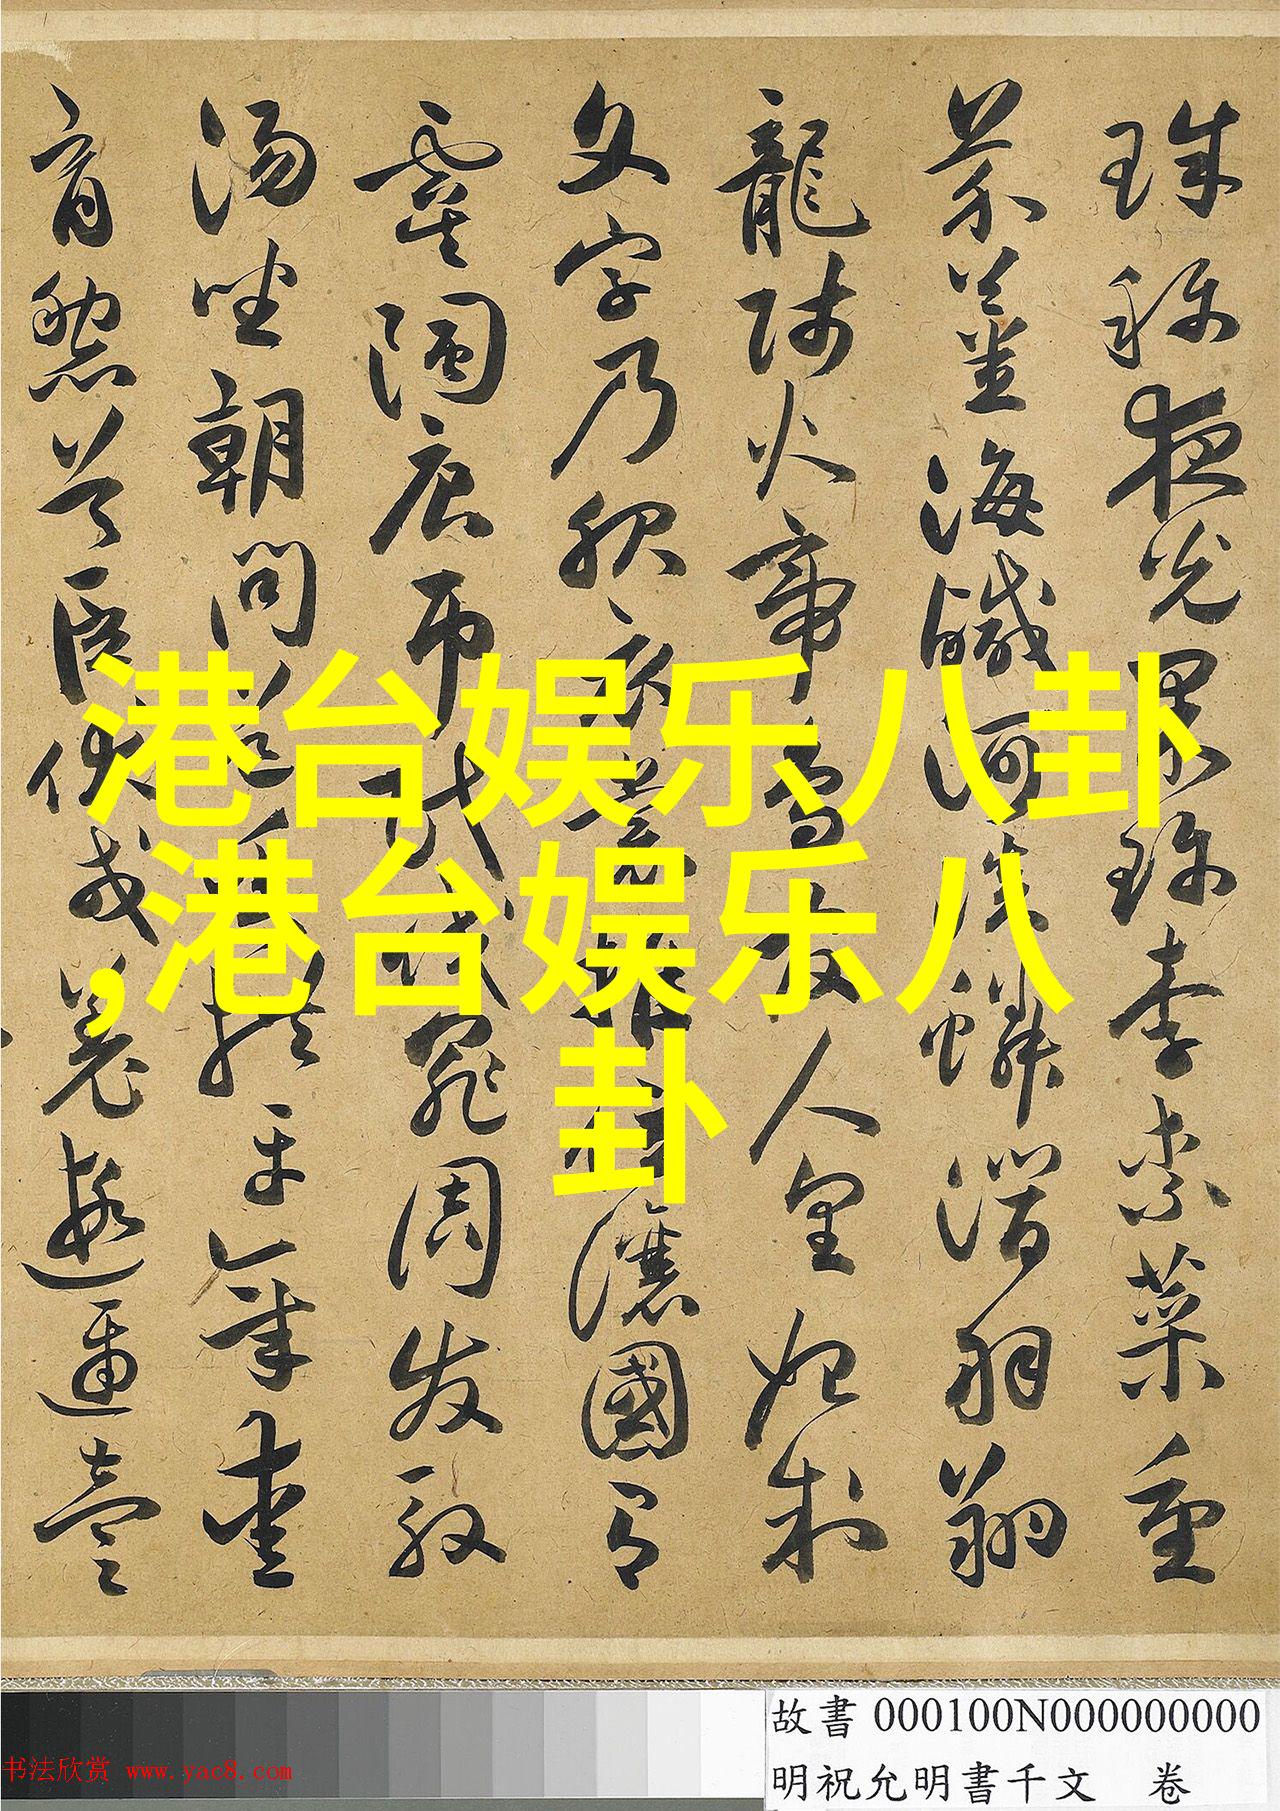 珠稱夜光果珍李柰菜重
芥薑海鹹河淡鱗潛羽翔
龍師火帝鳥官人皇始制
文字乃服衣裳推位讓國有
虞陶唐弔民伐罪周發殷
湯坐朝問道垂拱平章愛
育黎首臣伏戎羌遐邇壹
港台娱乐八卦
,港台娱乐八
卦
故書 000100N000000000
明祝允明書千文 卷
书法欣赏 www.yac8.com